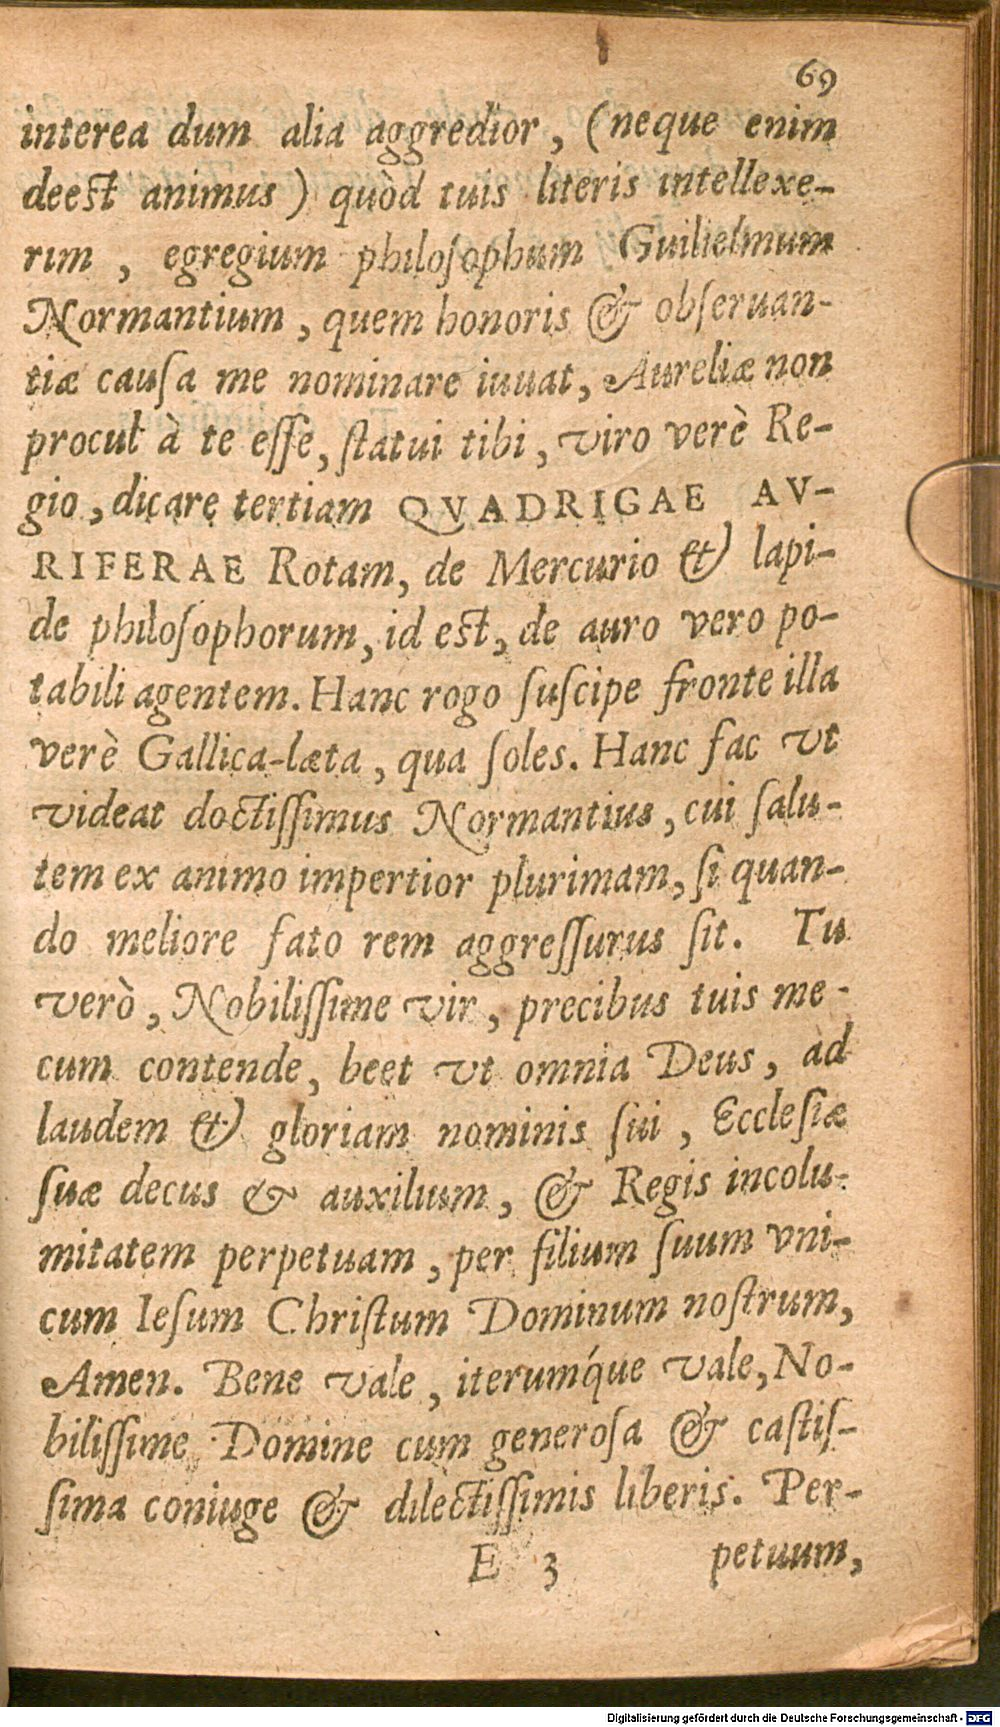 69
interea dum alia aggredior, (neque enim
deest animus) quòd tuis literis intellexe-
rim, egregium philoſophum Guilielmum
Normantium, quem honoris & obſeruan-
tiæ cauſa me nominare iuuat, Aureliæ non
procul à te eſſe, ſtatui tibi, viro verè Re-
gio, dicare tertiam QVADRIGAE AV-
RIFERAE Rotam, de Mercurio & lapi-
de philoſophorum, id est, de auro vero po-
tabili agentem. Hanc rogo ſuſcipe fronte illa
verè Gallica-læta, qua ſoles. Hanc fac vt
videat doctiſſimus Normantius, cui ſalu-
tem ex animo impertior plurimam, ſi quan-
do meliore fato rem aggreſſurus ſit. Tu
verò, Nobiliſſime vir, precibus tuis me-
cum contende, beet vt omnia Deus, ad
laudem & gloriam nominis ſui, Eccleſiæ
ſuæ decus & auxilium, & Regis incolu-
mitatem perpetuam, per filium ſuum vni-
cum Ieſum Chriſtum Dominum noſtrum,
Amen. Bene vale, iterumq́ue vale, No-
biliſſime Domine cum generoſa & caſtiſ-
ſima coniuge & dilectiſſimis liberis. Per-
E 3 petuum,
Digitalisierung gefördert durch die Deutsche Forschungsgemeinschaft - DFG